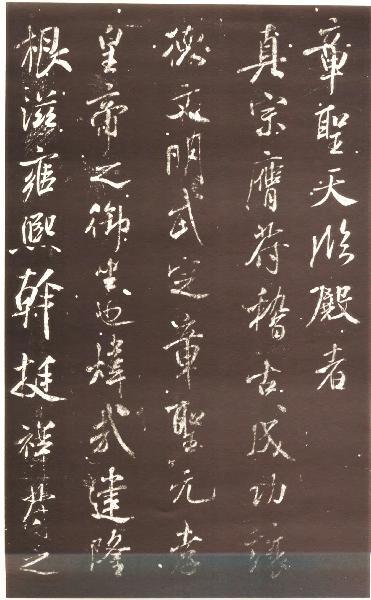 章聖天臨殿者
真宗膺符稽古成功讓
德文明武定章聖元孝
皇帝之御坐也煒哉建隆
根滋雍熙幹挺祥符之